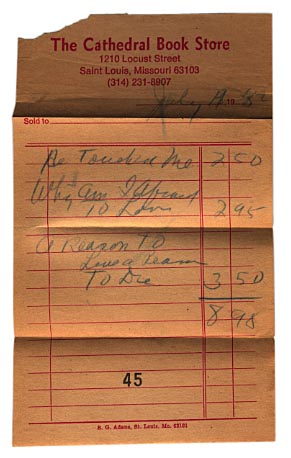 The Cathedral Book Store
1210 Locust Street
Saint Louis, Missouri 63103
(314) 231-8907
July 19
Sold to
He Touched Me 2 50
Why am I Afraid
To Love 2 95
A Reason TO
Live a Reason
To Die 3 50
8 98
45
S. G. Adams, St. Louis, Mo. 63101